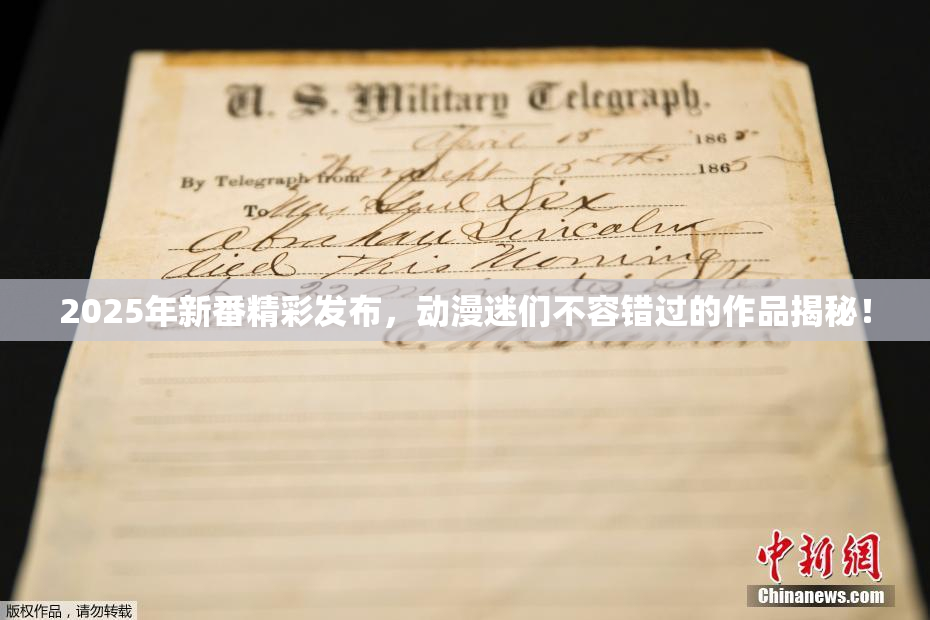 U. S. Military Telegraph.
April 15 1865
By Telegraph from War Dept 15th 1865
To Maj Genl Dix
Abraham Lincoln
died This Morning
at 22 minutes after
2025年新番精彩发布，动漫迷们不容错过的作品揭秘！
Stanton
中新网
Chinanews.com
版权作品，请勿转载